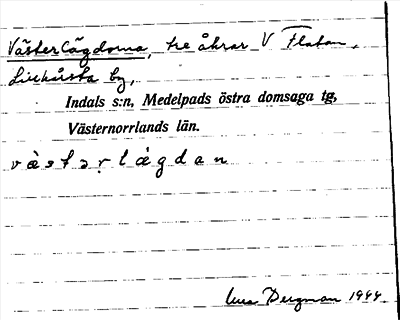 Västerlägdorna, tre åkrar V Flatan,
Liekåsta by,
Indals s:n, Medelpads östra domsaga tg,
Västernorrlands län.
vä̀stərlä̀gdan
Bergman 1944